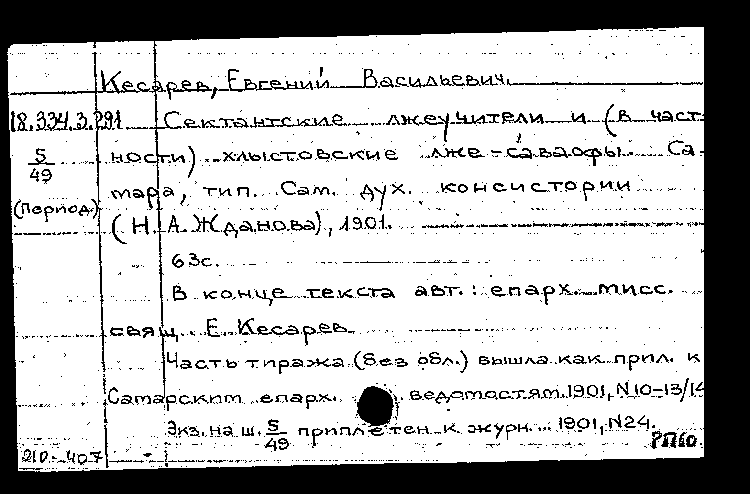 Кесарев, Евгений Васильевич.
18.334.3.291 Сектантские лжеучители и (в част-
5/49 ности) хлыстовские лже-саваофы. Са-
мара, тип. Сам. дух. консистории
(период.) (Н.А.Жданова), 1901.
63с.
В конце текста авт.: епарх. мисс.
свящ. Е. Кесарев.
Часть тиража (без обл.) вышла как прил. к
Самарским епарх. ведомостям.1901, N10-13/14
Экз. на ш. 5/49 приплетен к журн... 1901, N24.
210-407